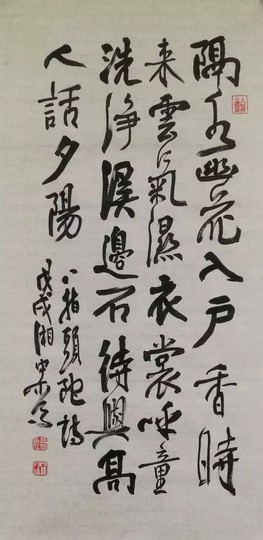 隔水幽花入戶香時
来雲氣濕衣裳呼童
洗淨溪邊石待與高
人話夕陽
八指頭陀詩
戊戌湘